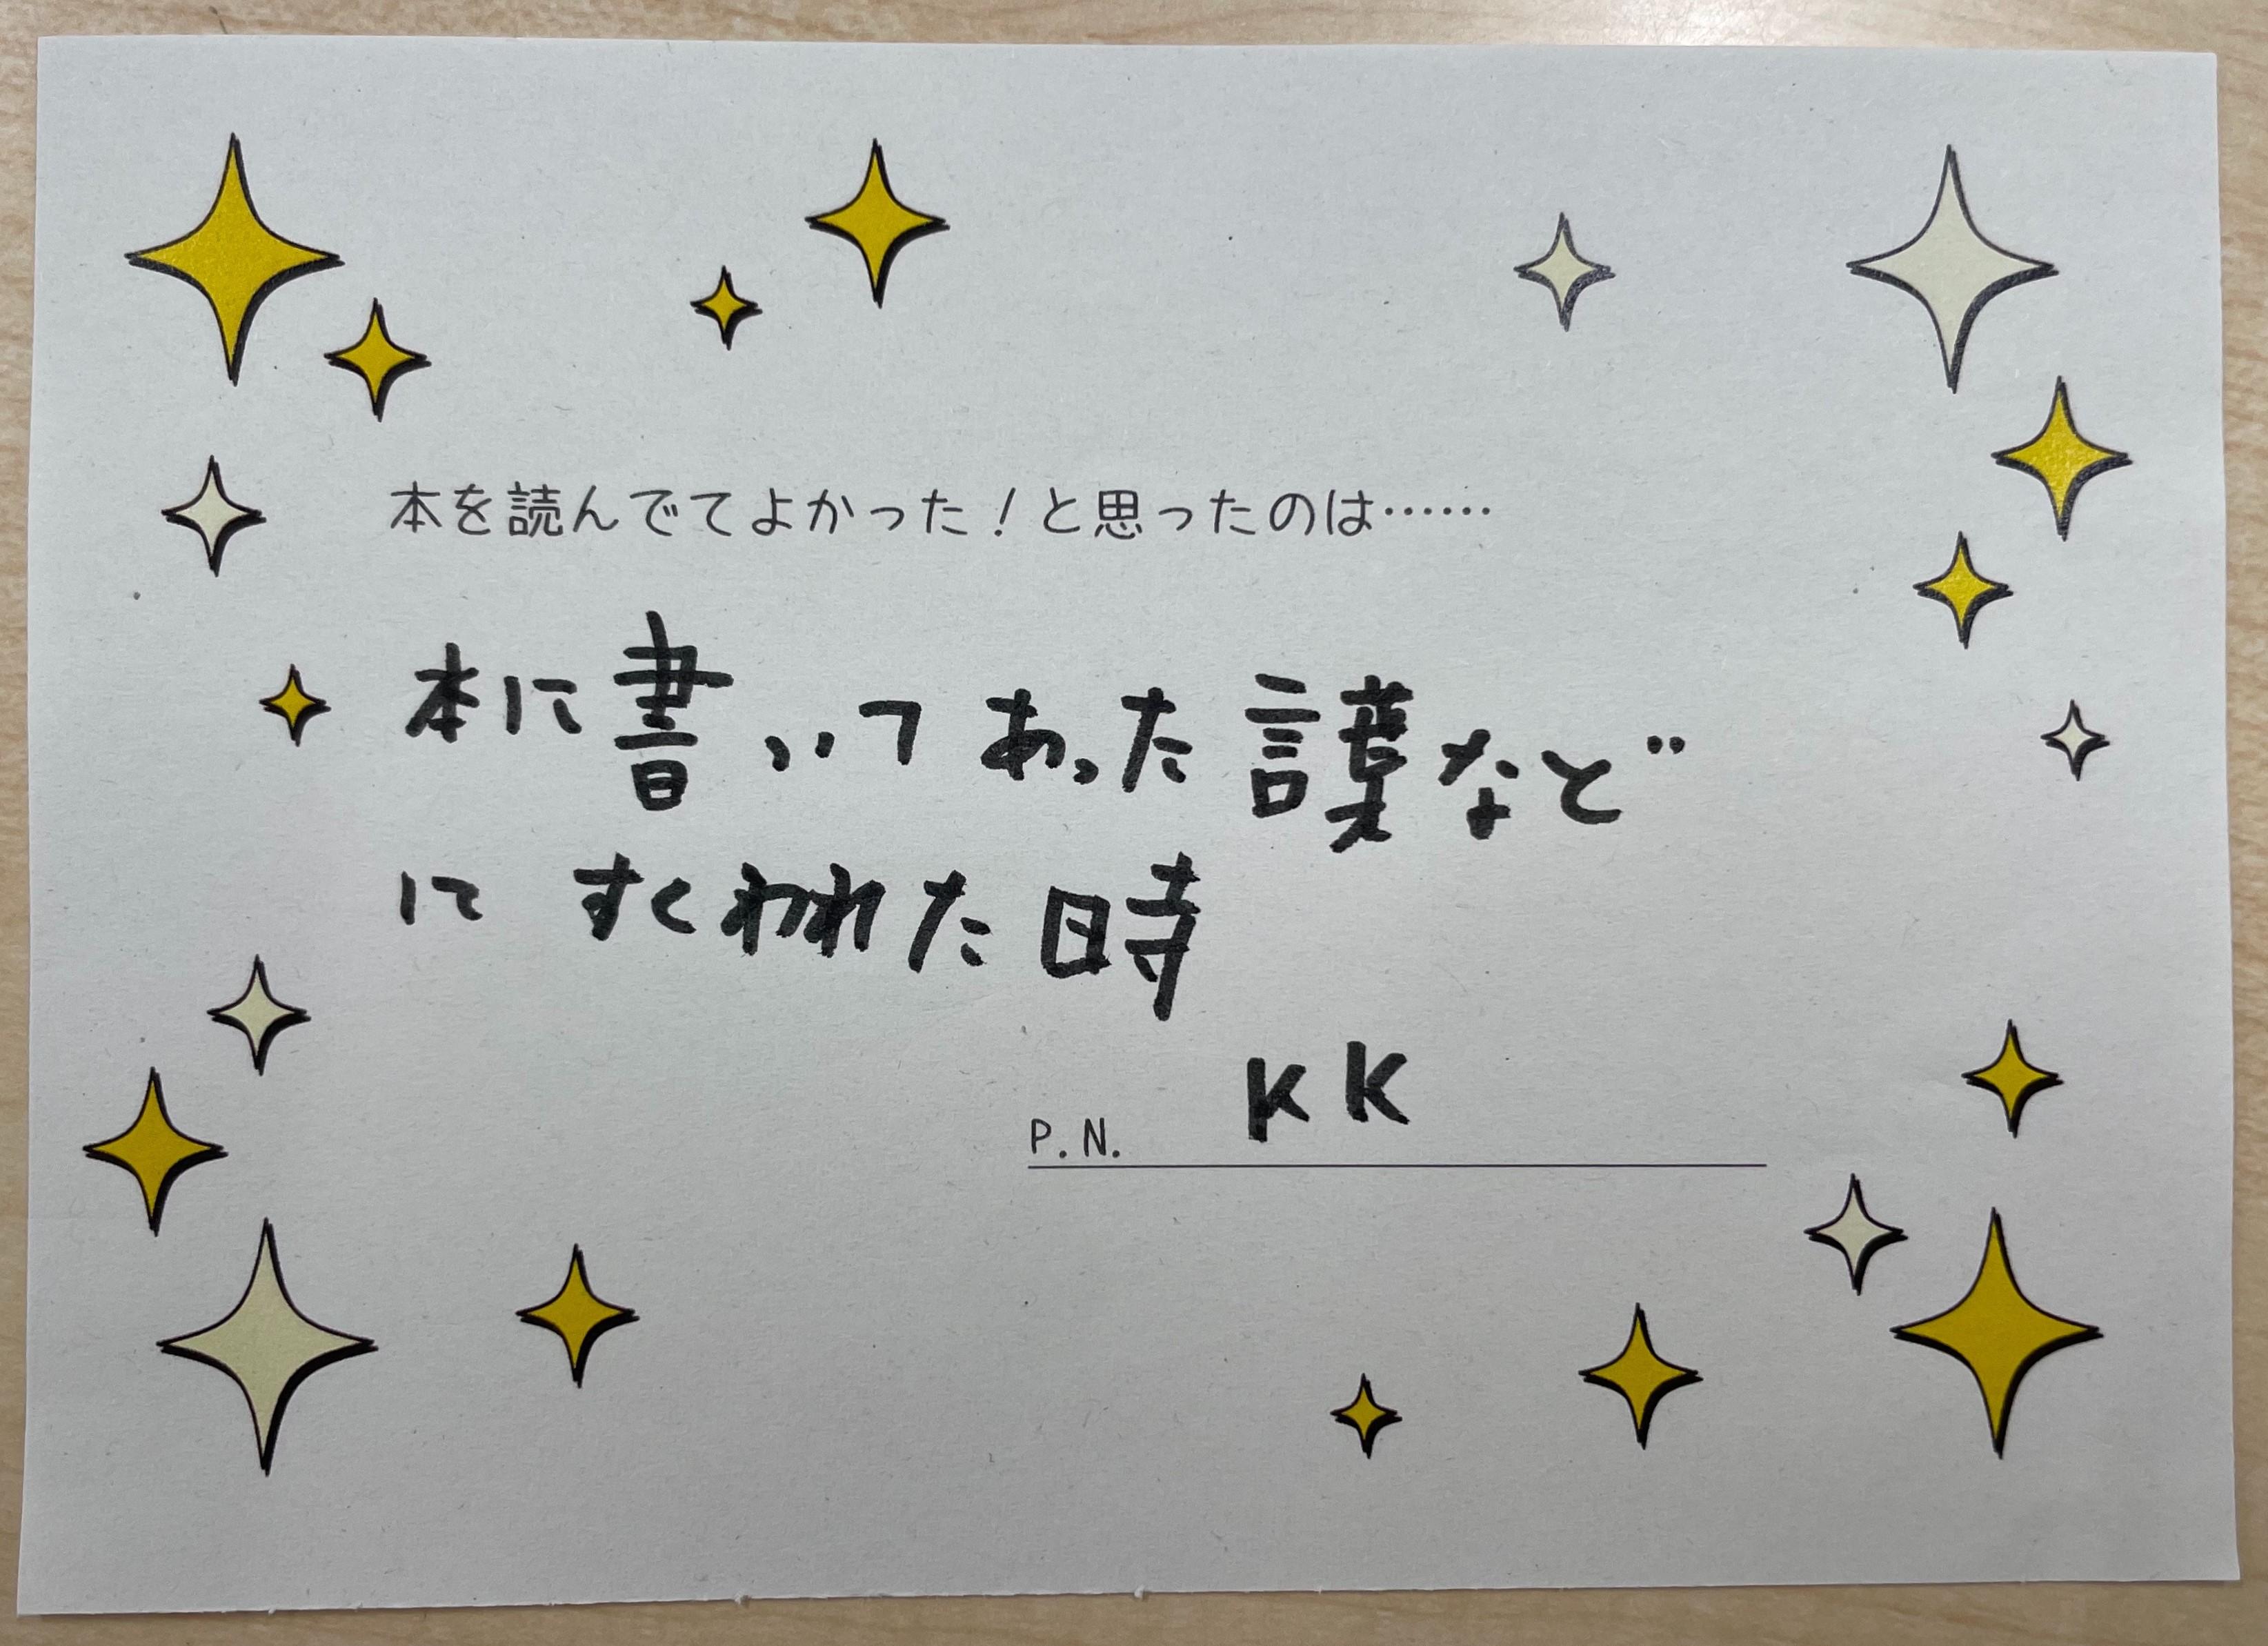 本を読んでてよかった！と思ったのは……
本に書いてあった言葉など
にすくわれた時
P.N. KK